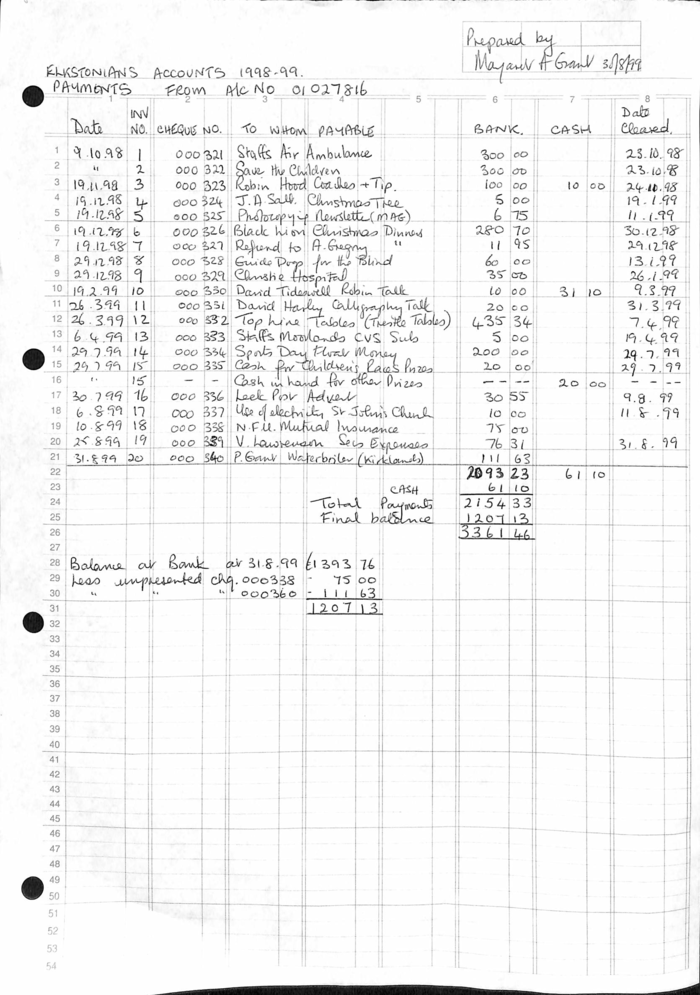 Prepared by
Margaret A Grant 30/8/99
ELKSTONIANS ACCOUNTS 1998-99.
PAYMENTS FROM A/c No 01027816
1 2 3 4 5 6 7 8
Date INV NO. CHEQUE NO. TO WHOM PAYABLE BANK. CASH Date Cleared.
1 9.10.98 1 000321 Staffs Air Ambulance 300 00 23.10.98
2 " 2 000322 Save the Children 300 00 23.10.98
3 19.11.98 3 000323 Robin Hood Coaches + Tip. 100 00 10 00 24.11.98
4 19.12.98 4 000324 J.A Salt. Christmas Tree 5 00 19.1.99
5 19.12.98 5 000325 Photocopy'g Newsletter (MAG) 6 75 11.1.99
6 19.12.98 6 000326 Black Lion Christmas Dinners 280 70 30.12.98
7 19.12.98 7 000327 Refund to A. Gregory " 11 95 29.12.98
8 29.12.98 8 000328 Guide Dogs for the Blind 60 00 13.1.99
9 29.12.98 9 000329 Christie Hospital 35 00 26.1.99
10 19.2.99 10 000330 David Tideswell Robin Talk 10 00 31 10 9.3.99
11 26.3.99 11 000331 David Harly Calligraphy Talk 20 00 31.3.99
12 26.3.99 12 000 532 Top Line Tables (Trestle Tables) 435 34 7.4.99
13 6.4.99 13 000 333 Staffs Moorlands CVS Subs 5 00 19.4.99
14 29.7.99 14 000 334 Sports Day Float Money 200 00 29.7.99
15 29.7.99 15 000 335 Cash for Children's Races Prizes 20 00 29.7.99
16 " 15 - - Cash in hand for other Prizes - - - - 20 00 - - - -
17 30.7.99 16 000 336 Leek Post Advert 30 55 9.8.99
18 6.8.99 17 000 337 Use of electricity St John's Church 10 00 11 8 .99
19 10.8.99 18 000 338 N.F.U. Mutual Insurance 75 00
20 25.8.99 19 000 339 V. Lawrenson Secs Expenses 76 31 31.8.99
21 31.8.99 20 000 340 P. Grant Waterboiler (Kirklands) 111 63
22 2093 23 61 10
23 CASH 61 10
24 Total Payments 2154 33
25 Final balance 1207 13
26 3361 46
27
28 Balance at Bank at 31.8.99 £1393 76
29 Less unpresented chq. 000338 - 75 00
30 " " " 000360 - 111 63
31 1207 13
32
33
34
35
36
37
38
39
40
41
42
43
44
45
46
47
48
49
50
51
52
53
54